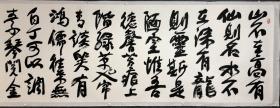 山不在高有
仙則名水不
在深有龍
則靈斯是
陋室惟吾
德馨苔痕上
階綠草色入簾
青談笑有
鴻儒往來無
白丁可以調
素琴閱金